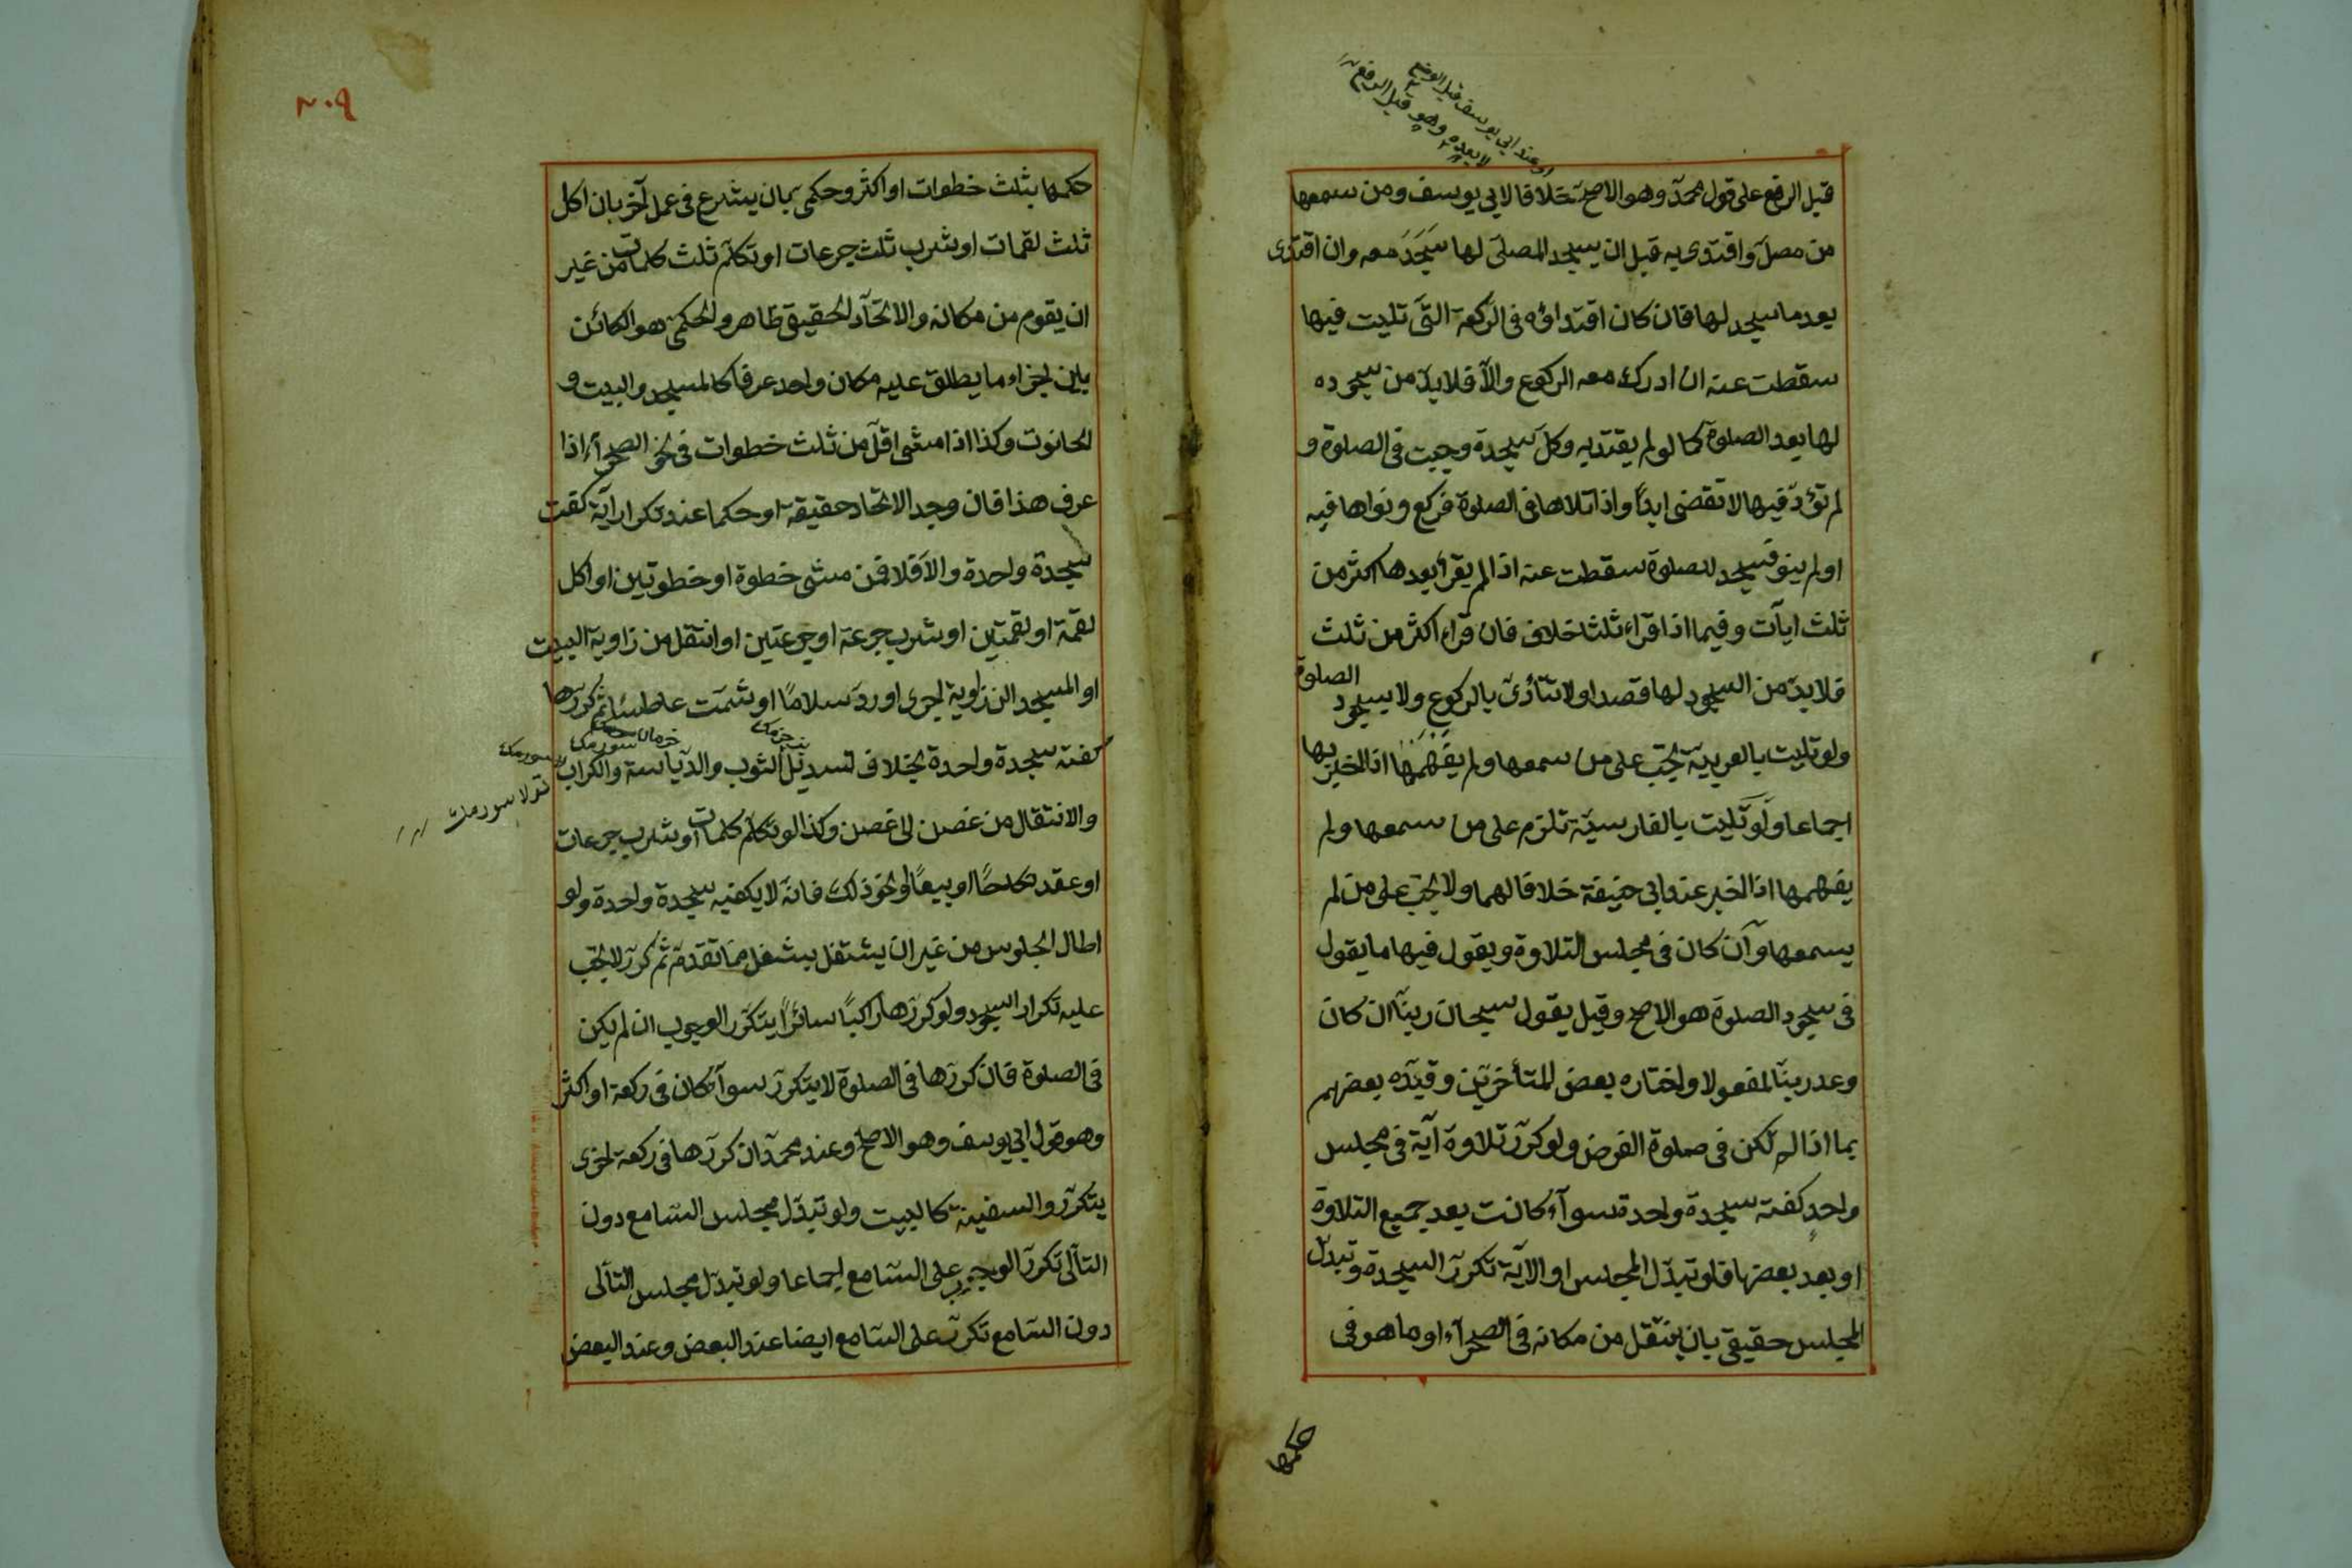 او عند ابي يوسف قبل الوضع
لا بعده وهو قبل الرفع
قبل الرفع على قول محمد وهو الاصح خلافا لابي يوسف ومن سمعها
من مصل واقتدى به قبل ان يسجد المصلى لها سجد معه وان اقتدى
بعد ما سجد لها فان كان اقتداؤه فى الركعة التى تليت فيها
سقطت عنه ان ادرك معه الركوع والا فلا بد من سجوده
لها بعد الصلوة كما لو لم يقتد به وكل سجدة وجبت فى الصلوة و
لم تؤد فيها لا تقضى ابدا واذا تلاها فى الصلوة فركع ونواها فيه
او لم ينو فسجد للصلوة سقطت عنه اذا لم يقرأ بعدها اكثر من
ثلث ايات وفيما اذا قراء ثلثا خلاف فان قراء اكثر من ثلث
فلا بد من السجود لها قصدا ولا تتأدى بالركوع ولا بسجود الصلوة
ولو تليت بالعربية تجب على من سمعها ولم يفهمها اذا اخبر بها
اجماعا ولو تليت بالفارسية تلزم على من سمعها ولم
يفهمها اذا اخبر عند ابي حنيفة خلافا لهما ولا تجب على من لم
يسمعها وان كان فى مجلس التلاوة ويقول فيها ما يقول
فى سجود الصلوة هو الاصح وقيل يقول سبحان ربنا ان كان
وعد ربنا لمفعولا واختاره بعض المتأخرين وقيده بعضهم
بما اذا لم تكن فى صلوة الفرض ولو كرر تلاوة آية فى مجلس
واحد كفته سجدة واحدة سوآء كانت بعد جميع التلاوة
او بعد بعضها فلو تبدل المجلس او الآية تكرر السجدة وتبدل
المجلس حقيقى بان ينتقل من مكانه فى الصحرآء او ما هو فى
حكمها
٢٠٩
حكمها بثلث خطوات او اكثر وحكمى بان يشرع فى عمل آخر بان اكل
ثلث لقمات او شرب ثلث جرعات او تكلم ثلث كلمات من غير
ان يقوم من مكانه والاتحاد الحقيقى ظاهر والحكمى هو الكائن
باين اجزاء ما يطلق عليه مكان واحد عرفا كالمسجد والبيت و
الحانوت وكذا اذا مشى اقل من ثلث خطوات فى نحو الصحرآء اذا
عرف هذا فان وجد الاتحاد حقيقة او حكما عند تكرار آية كفت
سجدة واحدة والا فلا فمن مشى خطوة او خطوتين او اكل
لقمة او لقمتين او شرب جرعة او جرعتين او انتقل من زاوية البيت
او المسجد الى زاوية اخرى او رد سلاما او شمت عاطسا ثم كررها
كفته سجدة واحدة بخلاف تسدية الثوب والدياسة والكراب
خرمان سورمك
تولا سورمك
والانتقال من غصن الى غصن وكذا لو تكلم كلمات او شرب جرعات
او عقد نكاحا او بيعا او نحو ذلك فانه لا يكفيه سجدة واحدة ولو
اطال الجلوس من غير ان يشتغل بشغل مما تقدم ثم كرر لا تجب
عليه تكرار السجود ولو كررها راكبا سائرا يتكرر الوجوب ان لم يكن
فى الصلوة فان كررها فى الصلوة لا يتكرر سوآء كان فى ركعة او اكثر
وهو قول ابي يوسف وهو الاصح وعند محمد ان كررها فى ركعة اخرى
يتكرر والسفينة كالبيت ولو تبدل مجلس السامع دون
التالى تكرر الوجوب على السامع اجماعا ولو تبدل مجلس التالى
دون السامع تكرر على السامع ايضا عند البعض وعند البعض